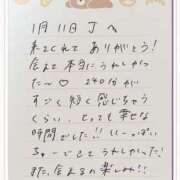 1月11日 丁へ
来てくれて ありがとう!
会えて 本当に うれしかっ
た〜♡ 240分が
すごく 短く 感じちゃう
くらい、とっても 幸せな
時間でした!! いーっぱい
ちゅーできて うれしかった!
また、会えるの 楽しみ!!